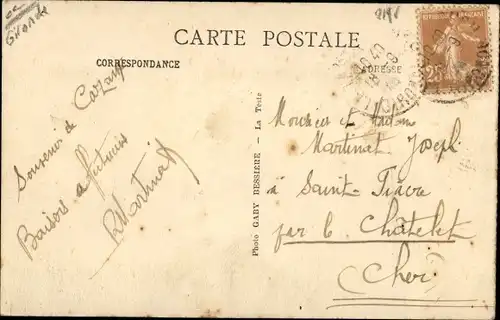 Gironde
2198
CARTE POSTALE
CORRESPONDANCE
ADRESSE
REPUBLIQUE FRANÇAISE
25
Souvenir de
Baisers affectueux
RMartinat
Photo GABY BESSIÈRE - La Teste
Monsieur et Madame
Martinat Joseph
à Saint-
par le Châtelet
Cher